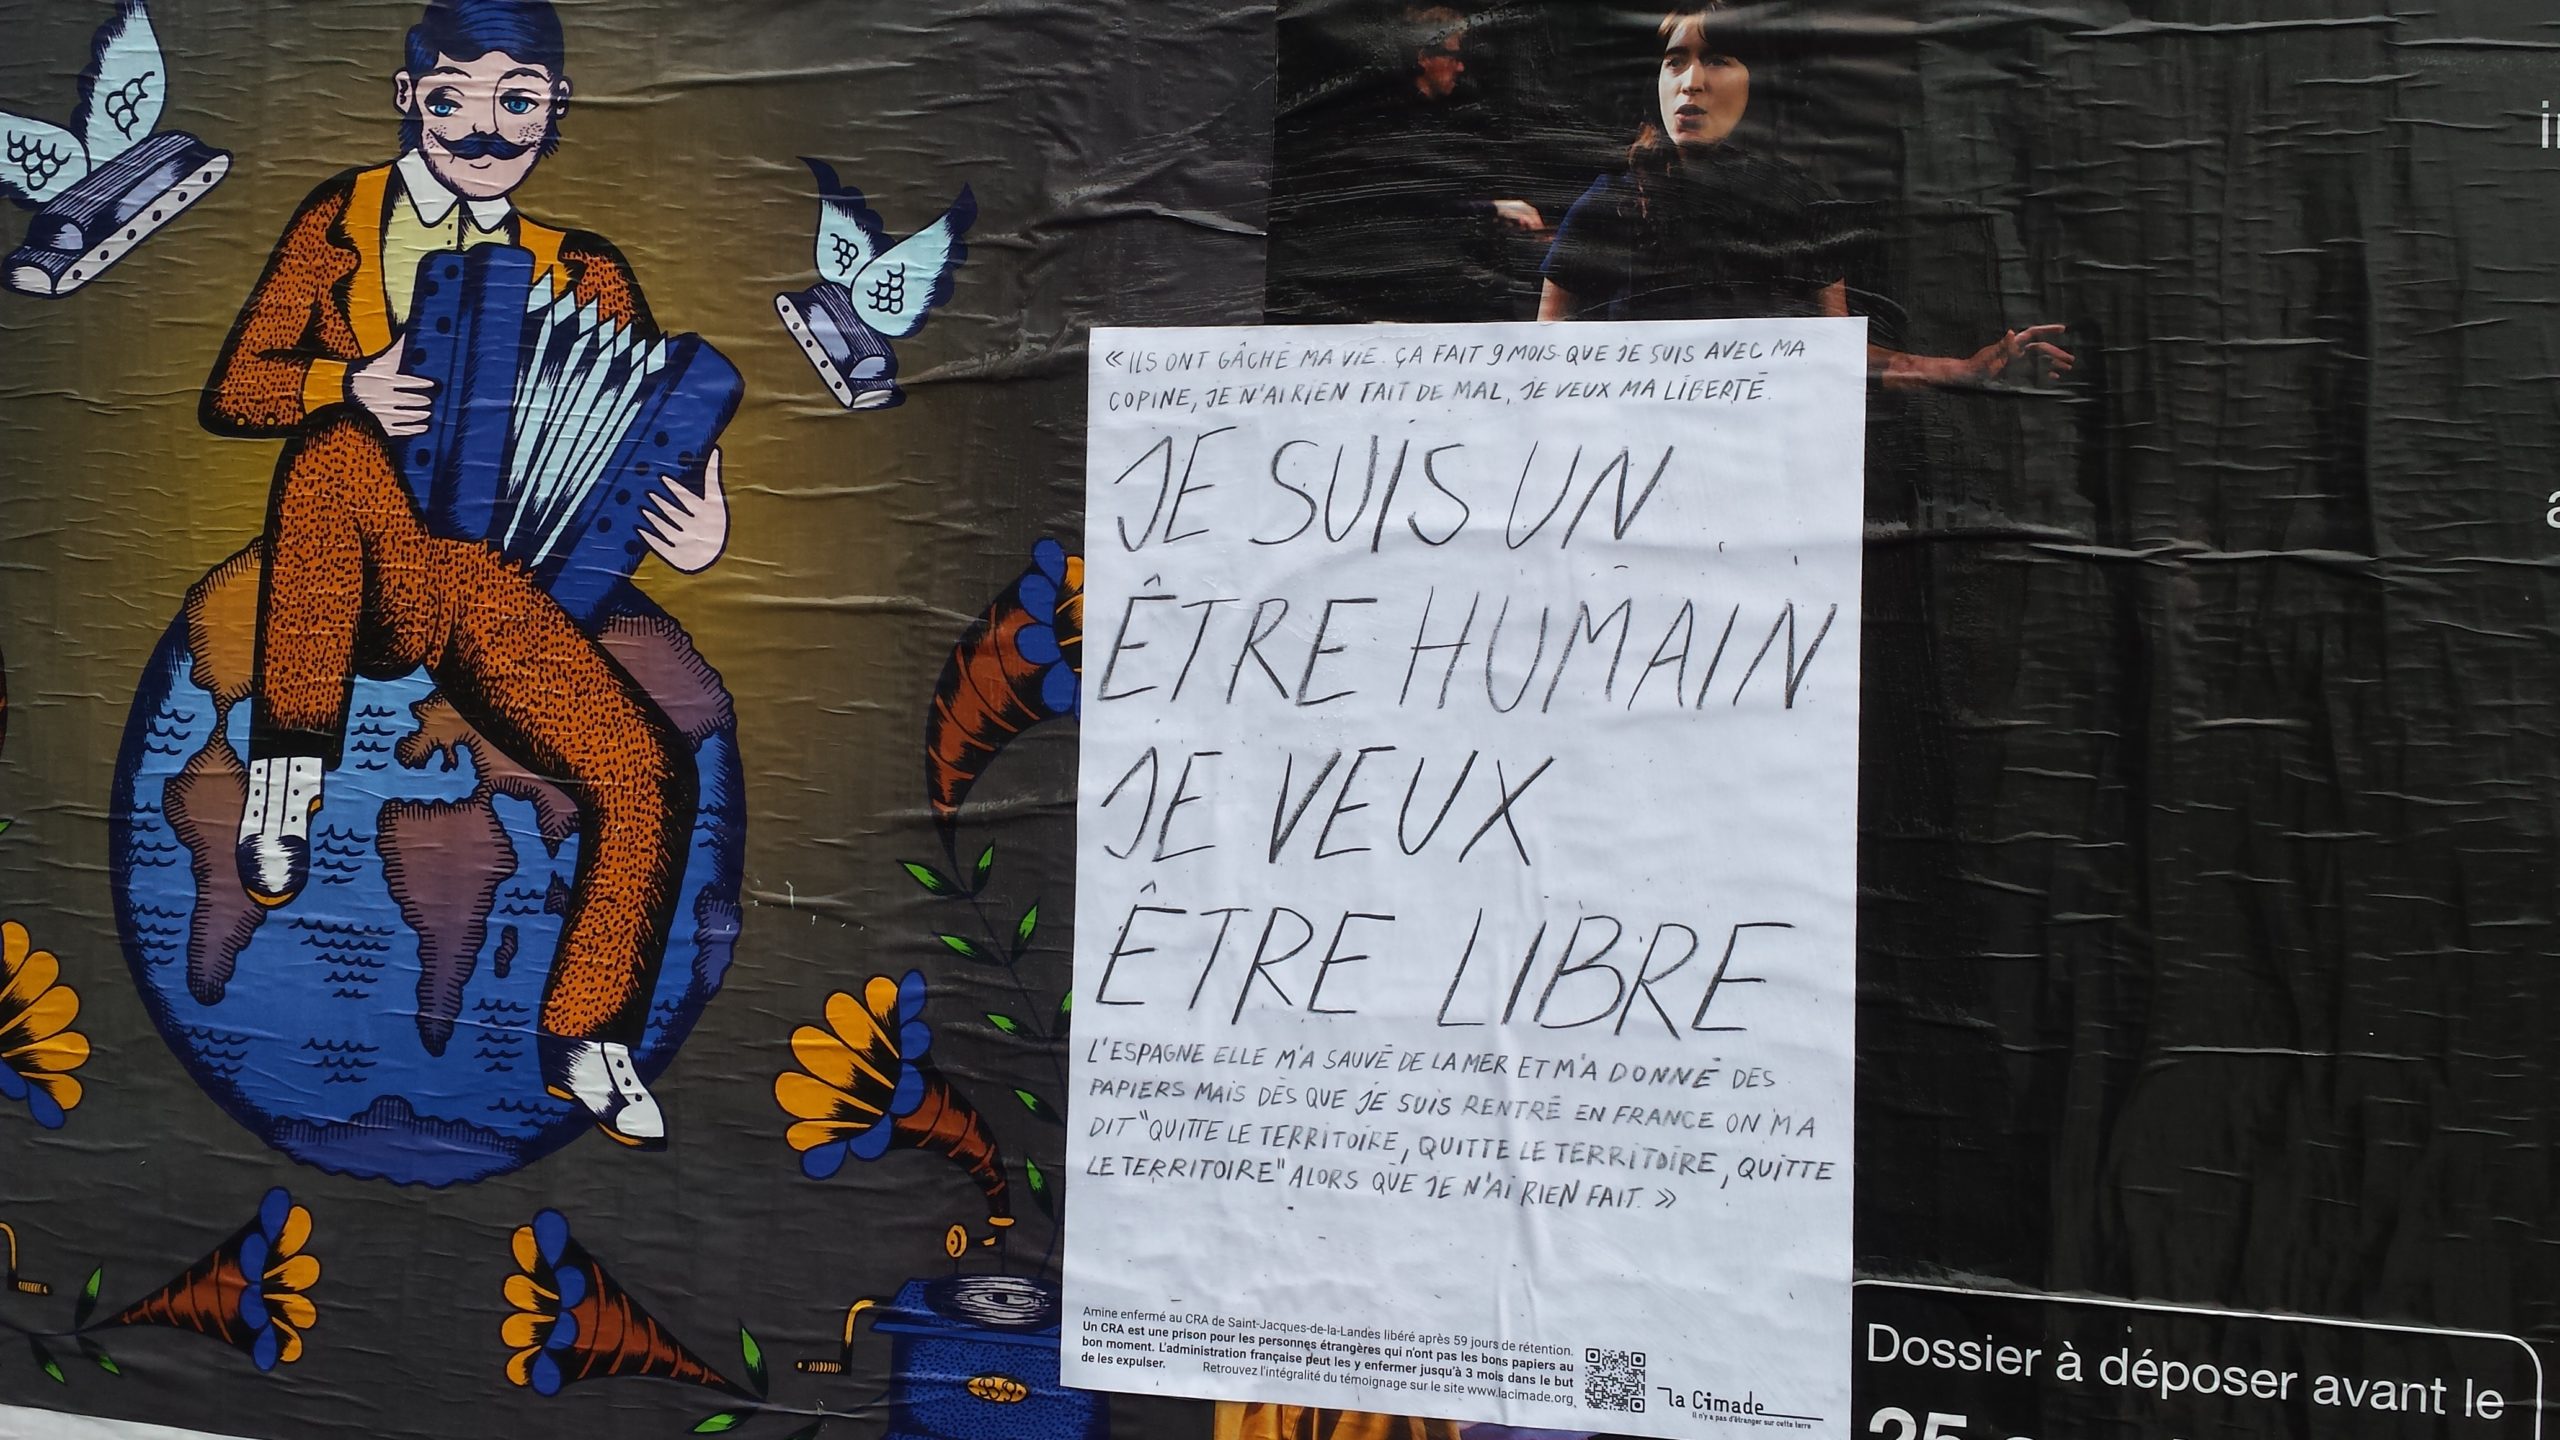 « ILS ONT GÂCHÉ MA VIE. ÇA FAIT 9 MOIS QUE JE SUIS AVEC MA
COPINE, JE N'AI RIEN FAIT DE MAL, JE VEUX MA LIBERTÉ.
JE SUIS UN
ÊTRE HUMAIN
JE VEUX
ÊTRE LIBRE
L'ESPAGNE ELLE M'A SAUVÉ DE LA MER ET M'A DONNÉ DES
PAPIERS MAIS DÈS QUE JE SUIS RENTRÉ EN FRANCE ON M'A
DIT "QUITTE LE TERRITOIRE, QUITTE LE TERRITOIRE, QUITTE
LE TERRITOIRE" ALORS QUE JE N'AI RIEN FAIT. »
Amine enfermé au CRA de Saint-Jacques-de-la-Landes libéré après 59 jours de rétention.
Un CRA est une prison pour les personnes étrangères qui n'ont pas les bons papiers au
bon moment. L'administration française peut les y enfermer jusqu'à 3 mois dans le but
de les expulser.
Retrouvez l'intégralité du témoignage sur le site www.lacimade.org
la Cimade
Il n'y a pas d'étranger sur cette terre
Dossier à déposer avant le
25